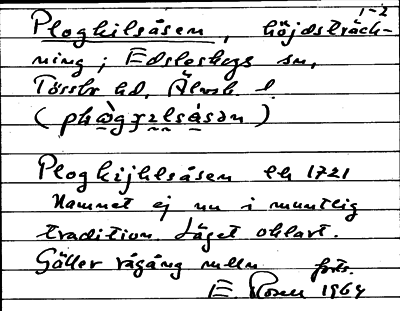 1-2
Plogkilsåsen, höjdsträck-
ning; Edsleskogs sn,
Tössbo hd, Älvsb. l.
Plogkijhlsåsen lh 1721
Namnet ej nu i muntlig
tradition. Läget oklart.
Gäller rågång mellan forts.
E Rosen 1964